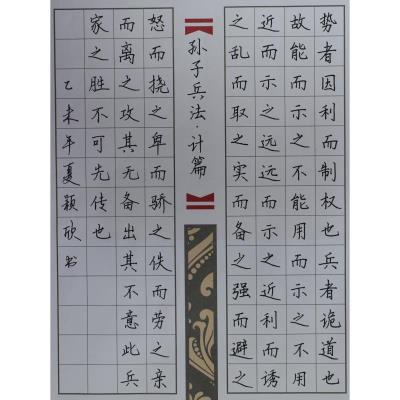 势者因利而制权也兵者诡道也
故能而示之不能用而示之不用
近而示之远远而示之近利而诱
之乱而取之实而备之强而避之
孙子兵法·计篇
怒而挠之卑而骄之佚而劳之亲
而离之攻其无备出其不意此兵
家之胜不可先传也
乙未年夏颖欣书